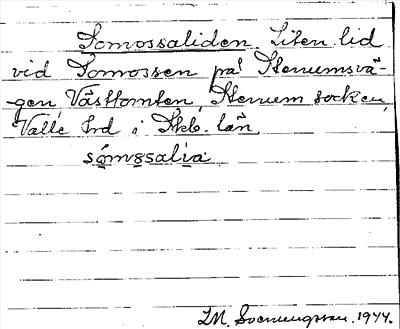 Somossaliden. Liten lid
vid Somossen på Stenumsvä-
gen, Västtomten, Stenum socken,
Valle hrd i Skb. län.
sómosalia
LM. Svenungsson. 1944.